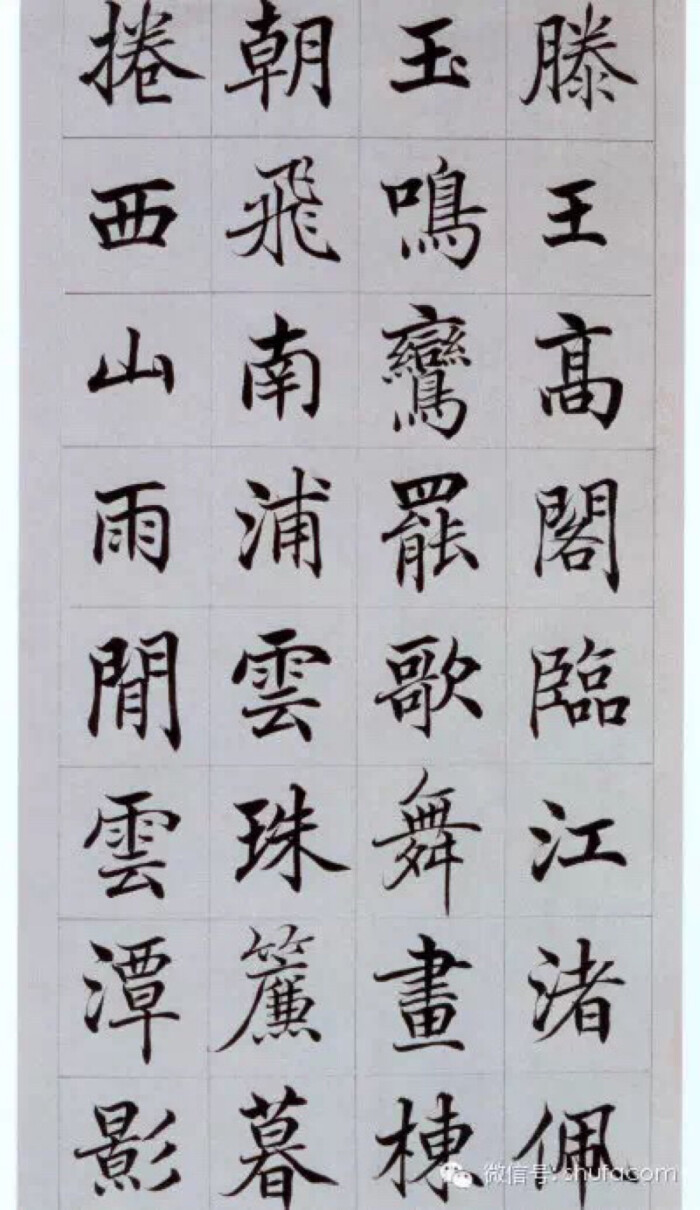 滕王高閣臨江渚佩
玉鳴鸞罷歌舞畫棟
朝飛南浦雲珠簾暮
捲西山雨閒雲潭影
微信号: shufacom